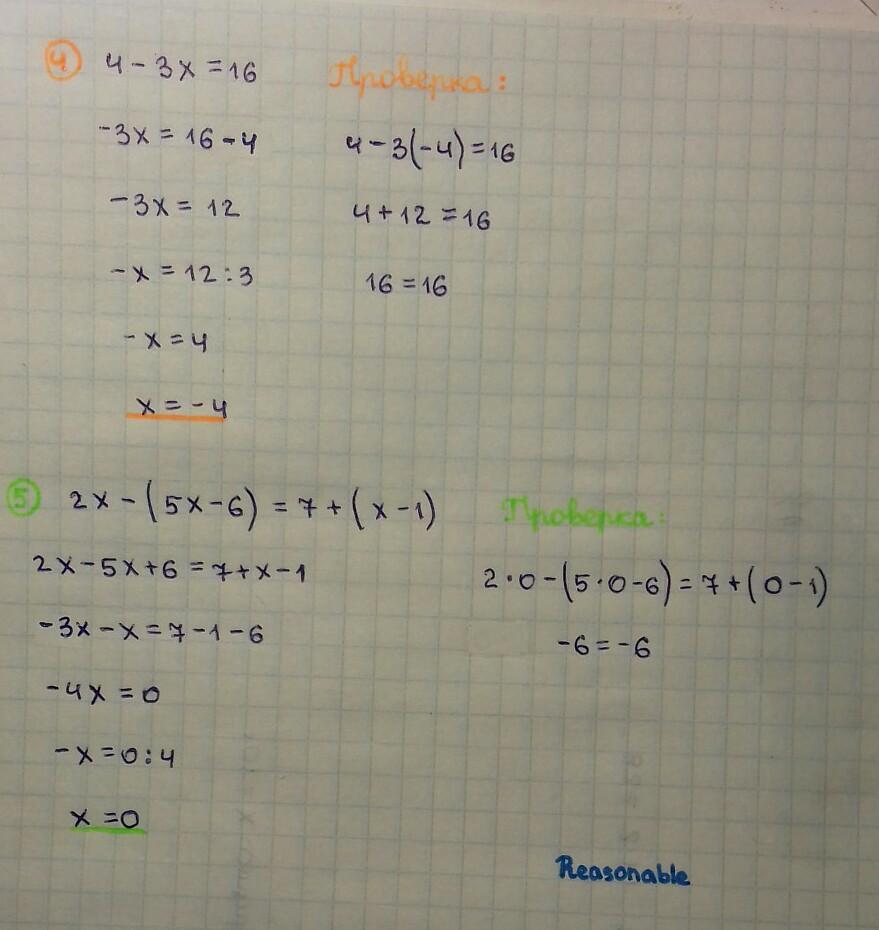 4 4 - 3x = 16
-3x = 16 - 4
-3x = 12
-x = 12 : 3
-x = 4
x = -4
Проверка:
4 - 3(-4) = 16
4 + 12 = 16
16 = 16
5 2x - (5x - 6) = 7 + (x - 1)
2x - 5x + 6 = 7 + x - 1
-3x - x = 7 - 1 - 6
-4x = 0
-x = 0 : 4
x = 0
Проверка:
2 · 0 - (5 · 0 - 6) = 7 + (0 - 1)
-6 = -6
Reasonable